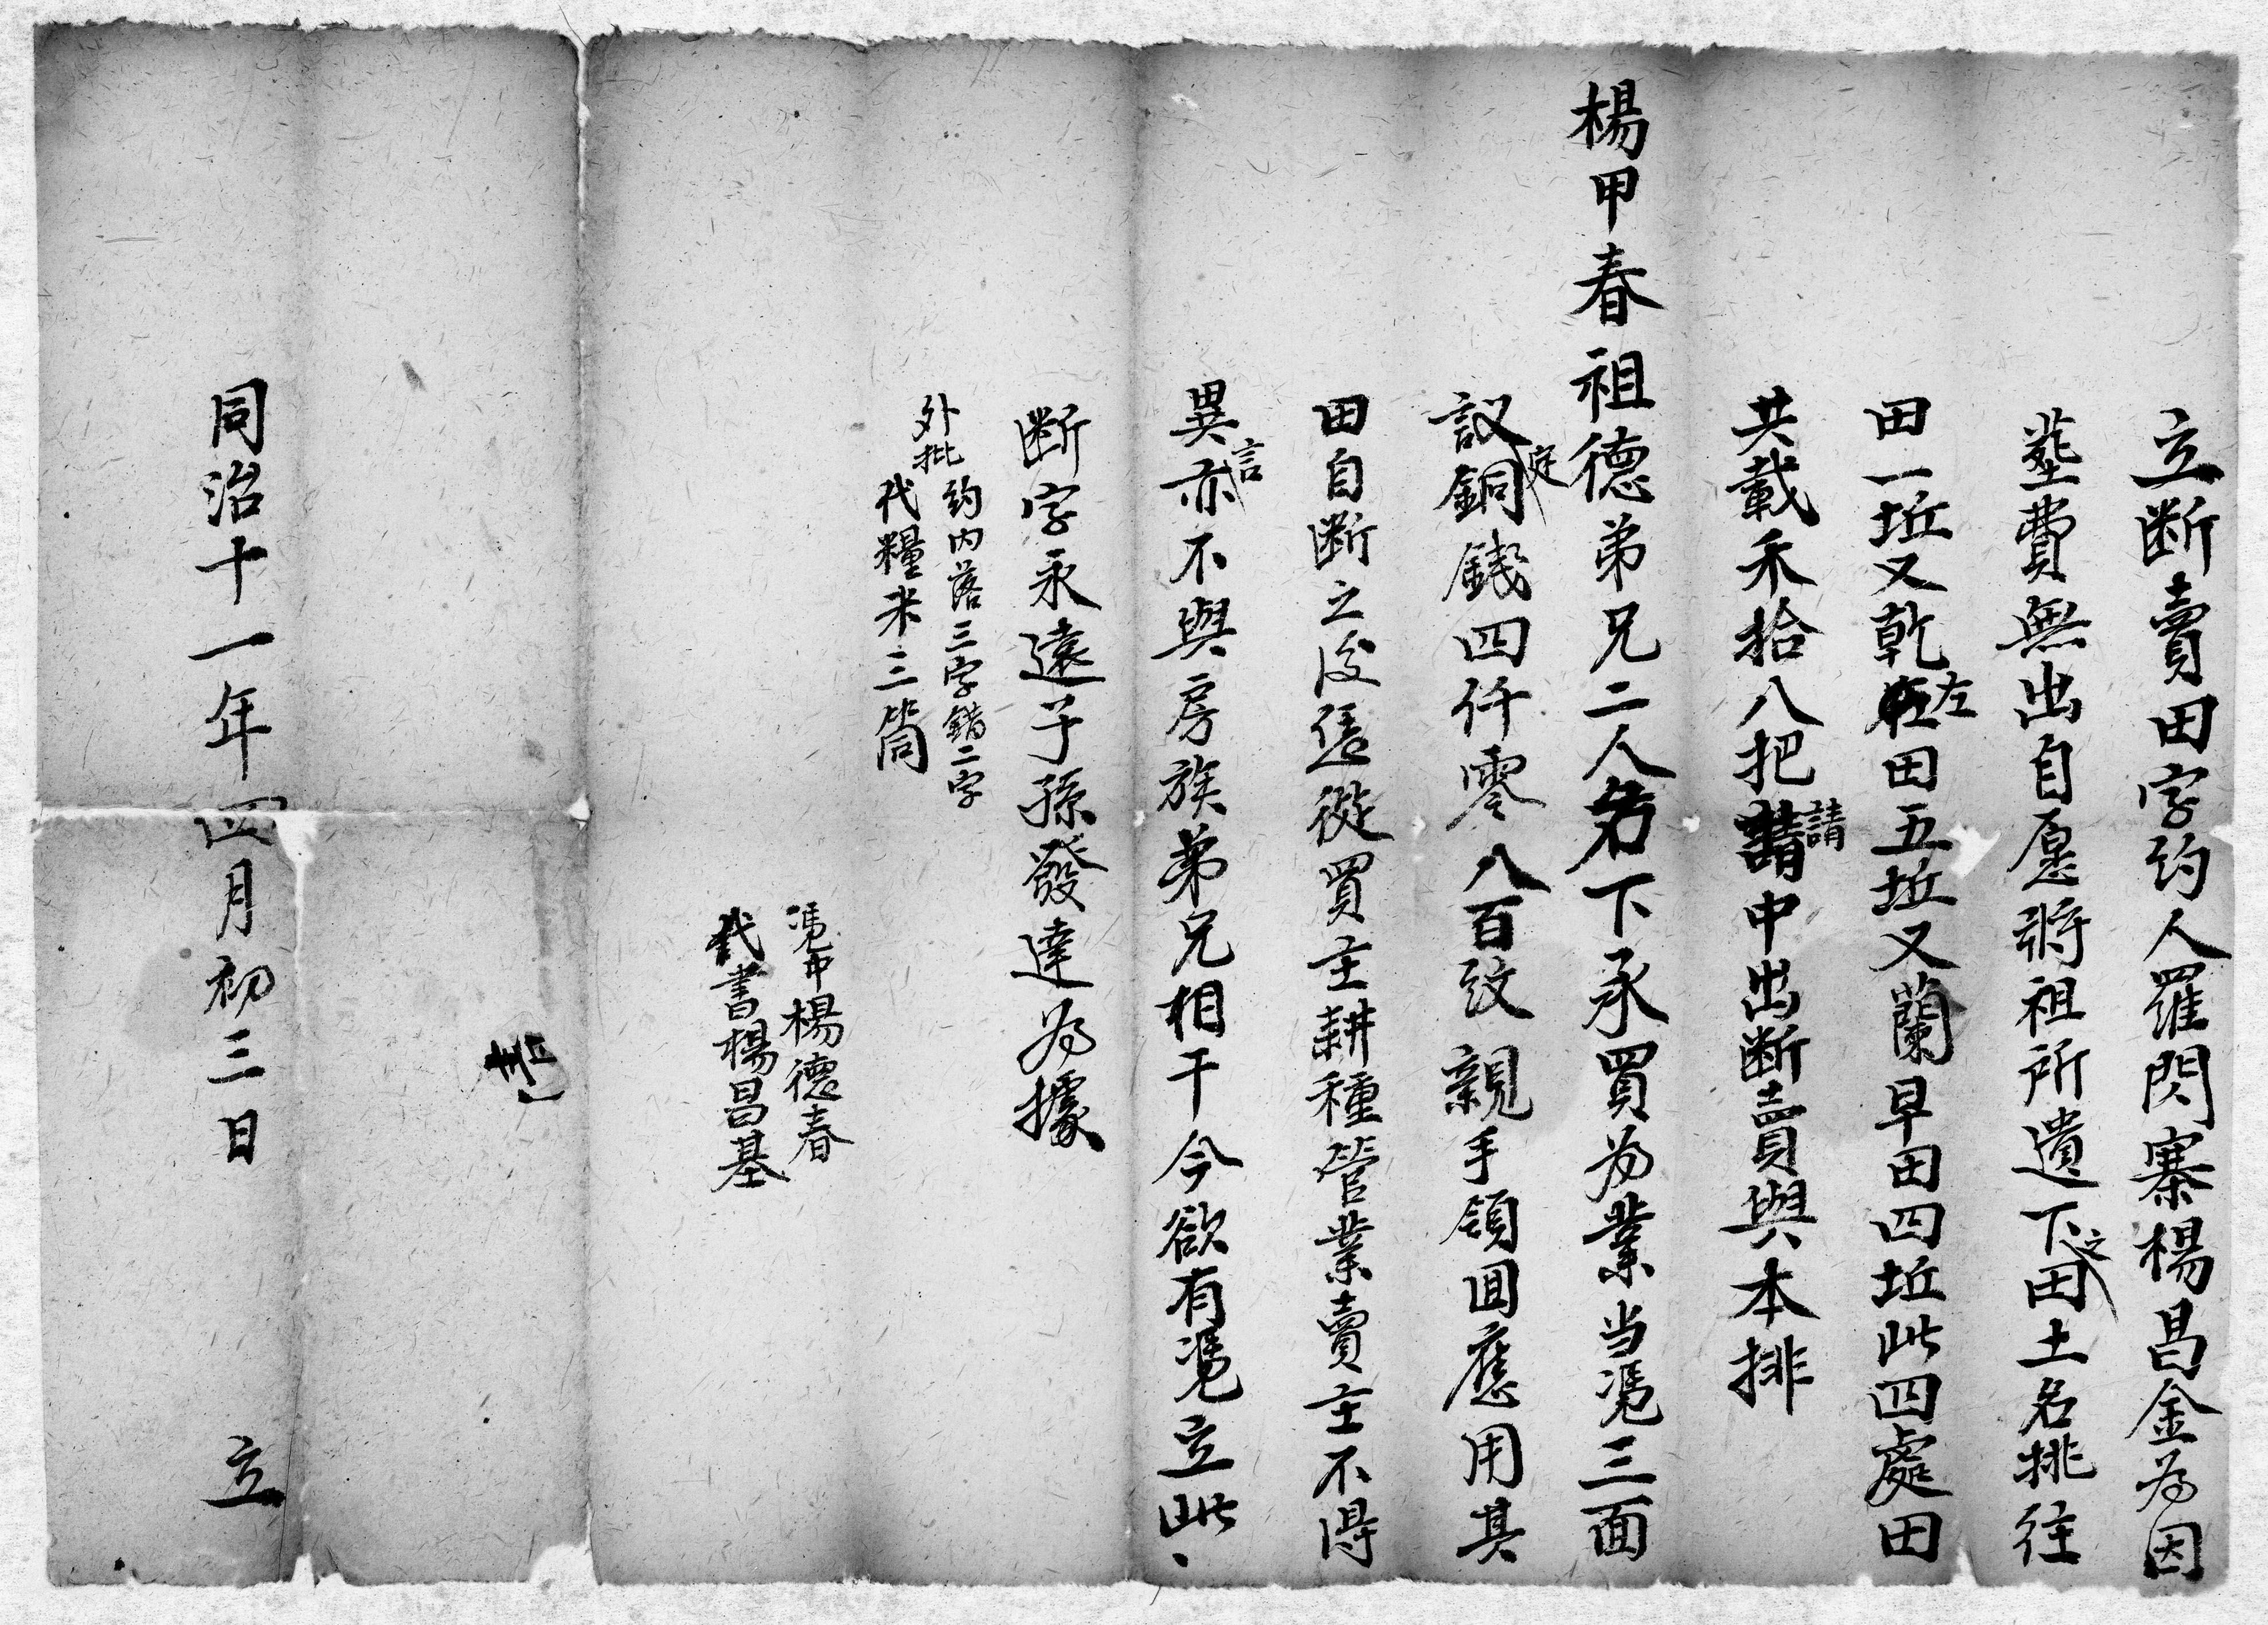 立断賣田字约人羅閃寨楊昌金为因
塟費無出自愿將祖所遺下之田土名排往
田一坵又乾左田五坵又蘭旱田四坵此四處田
共載禾拾八把請中出断賣與本排
楊甲春祖德弟兄二人名下承買为業当凴三面
議定銅錢四仟零八百文親手領囬應用其
田自断之後恁從買主耕種管業賣主不得
異言亦不與房族弟兄相干今欲有凴立此
断字永遠子孫發達为據
外批约内落三字錯二字
代糧米三筒
凴中楊德春
代書楊昌基
同治十一年四月初三日 立